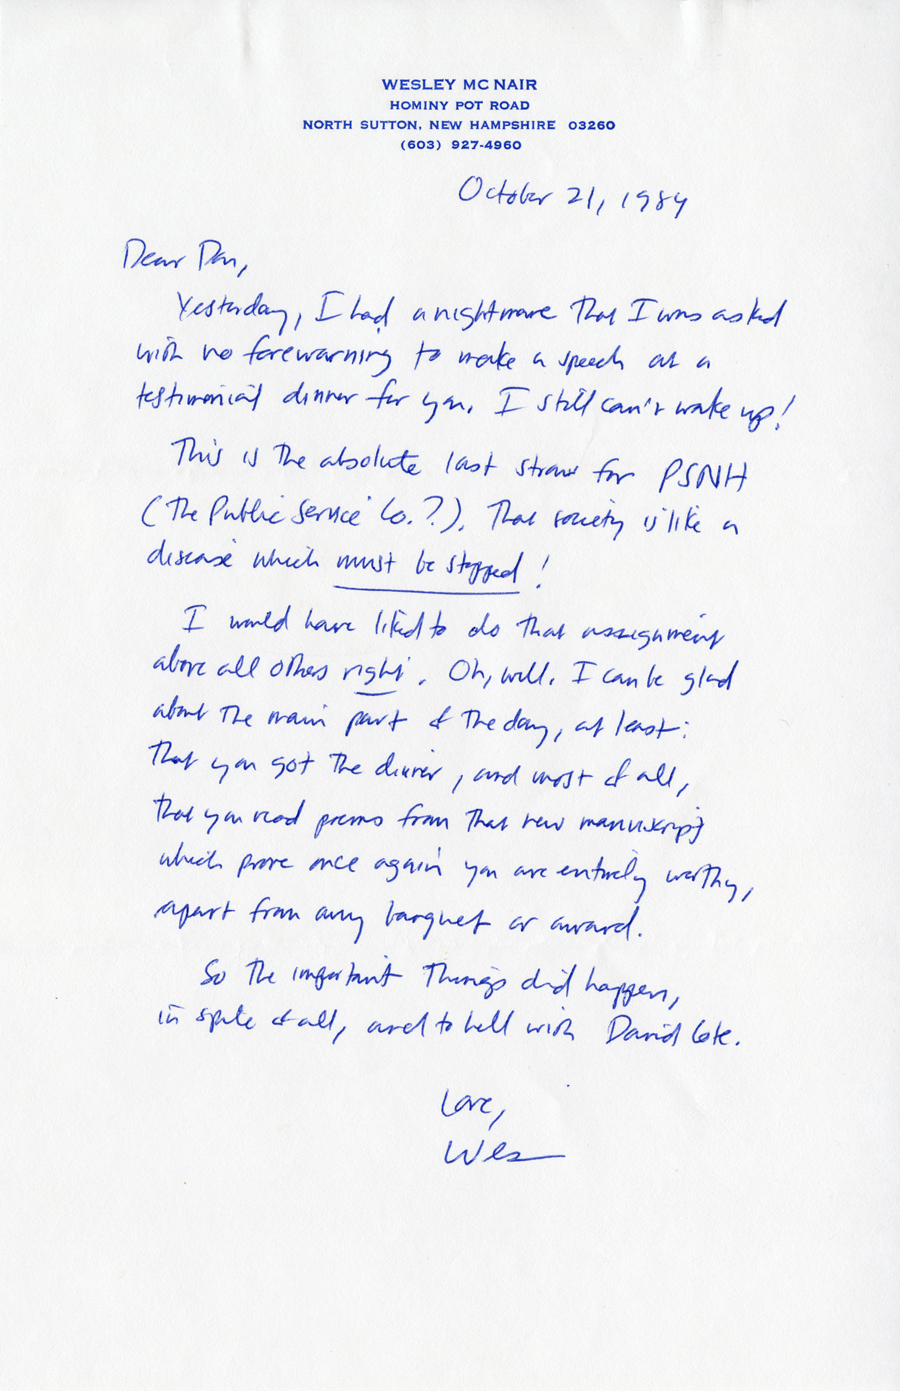 WESLEY MC NAIR
HOMINY POT ROAD
NORTH SUTTON, NEW HAMPSHIRE 03260
(603) 927-4960
October 21, 1984
Dear Don,
Yesterday, I had a nightmare that I was asked
with no forewarning to make a speech at a
testimonial dinner for you. I still can't wake up!
This is the absolute last straw for PSNH
(The Public Service Co.?). That society is like a
disease which must be stopped!
I would have liked to do that assignment
above all others right. Oh, well. I can be glad
about the main part of the day, at least:
that you got the dinner, and most of all,
that you read poems from that new manuscript
which prove once again you are entirely worthy,
apart from any banquet or award.
So the important things did happen,
in spite of all, and to hell with David Cote.
Love,
Wes